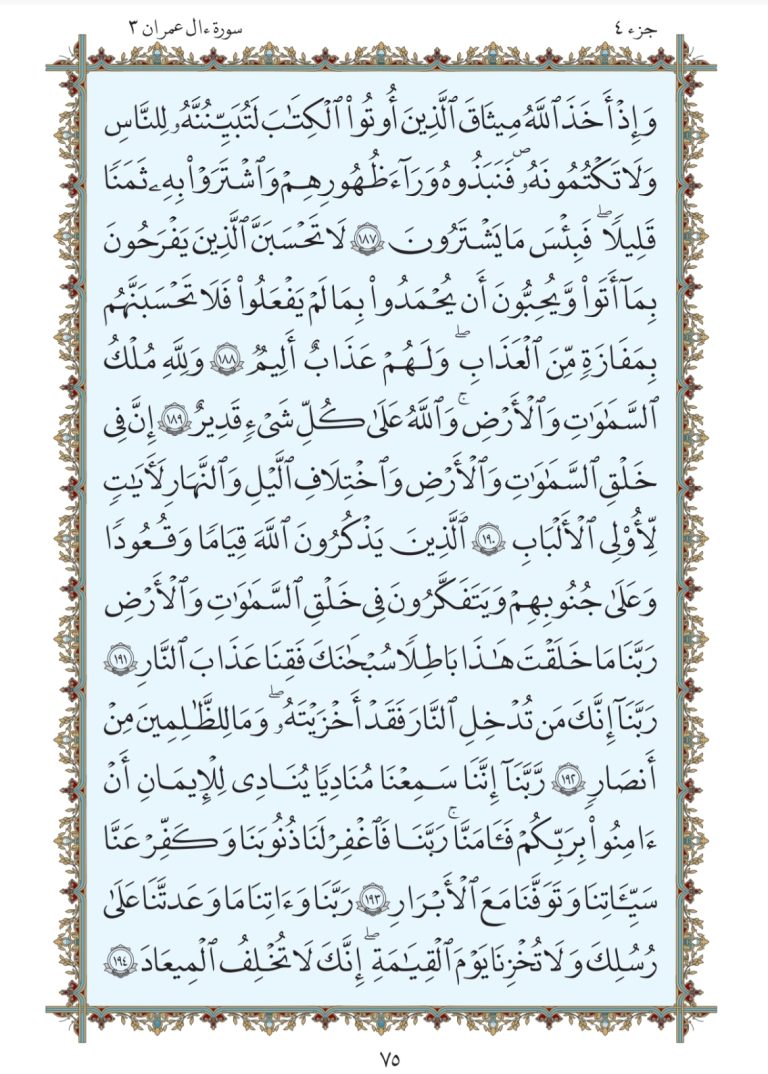 جزء ٤
سورة ءال عمران ٣
وَإِذْ أَخَذَ ٱللَّهُ مِيثَـٰقَ ٱلَّذِينَ أُوتُوا۟ ٱلْكِتَـٰبَ لَتُبَيِّنُنَّهُۥ لِلنَّاسِ
وَلَا تَكْتُمُونَهُۥ ۖ فَنَبَذُوهُ وَرَآءَ ظُهُورِهِمْ وَٱشْتَرَوْا۟ بِهِۦ ثَمَنًا
قَلِيلًا ۖ فَبِئْسَ مَا يَشْتَرُونَ ١٨٧ لَا تَحْسَبَنَّ ٱلَّذِينَ يَفْرَحُونَ
بِمَآ أَتَوا۟ وَّيُحِبُّونَ أَن يُحْمَدُوا۟ بِمَا لَمْ يَفْعَلُوا۟ فَلَا تَحْسَبَنَّهُم
بِمَفَازَةٍ مِّنَ ٱلْعَذَابِ ۖ وَلَهُمْ عَذَابٌ أَلِيمٌ ١٨٨ وَلِلَّهِ مُلْكُ
ٱلسَّمَـٰوَٰتِ وَٱلْأَرْضِ ۚ وَٱللَّهُ عَلَىٰ كُلِّ شَىْءٍ قَدِيرٌ ١٨٩ إِنَّ فِى
خَلْقِ ٱلسَّمَـٰوَٰتِ وَٱلْأَرْضِ وَٱخْتِلَـٰفِ ٱلَّيْلِ وَٱلنَّهَارِ لَـَٔايَـٰتٍ
لِّأُو۟لِى ٱلْأَلْبَـٰبِ ١٩٠ ٱلَّذِينَ يَذْكُرُونَ ٱللَّهَ قِيَـٰمًا وَقُعُودًا
وَعَلَىٰ جُنُوبِهِمْ وَيَتَفَكَّرُونَ فِى خَلْقِ ٱلسَّمَـٰوَٰتِ وَٱلْأَرْضِ
رَبَّنَا مَا خَلَقْتَ هَـٰذَا بَـٰطِلًا سُبْحَـٰنَكَ فَقِنَا عَذَابَ ٱلنَّارِ ١٩١
رَبَّنَآ إِنَّكَ مَن تُدْخِلِ ٱلنَّارَ فَقَدْ أَخْزَيْتَهُۥ ۖ وَمَا لِلظَّـٰلِمِينَ مِنْ
أَنصَارٍ ١٩٢ رَّبَّنَآ إِنَّنَا سَمِعْنَا مُنَادِيًا يُنَادِى لِلْإِيمَـٰنِ أَنْ
ءَامِنُوا۟ بِرَبِّكُمْ فَـَٔامَنَّا ۚ رَبَّنَا فَٱغْفِرْ لَنَا ذُنُوبَنَا وَكَفِّرْ عَنَّا
سَيِّـَٔاتِنَا وَتَوَفَّنَا مَعَ ٱلْأَبْرَارِ ١٩٣ رَبَّنَا وَءَاتِنَا مَا وَعَدتَّنَا عَلَىٰ
رُسُلِكَ وَلَا تُخْزِنَا يَوْمَ ٱلْقِيَـٰمَةِ ۖ إِنَّكَ لَا تُخْلِفُ ٱلْمِيعَادَ ١٩٤
٧٥